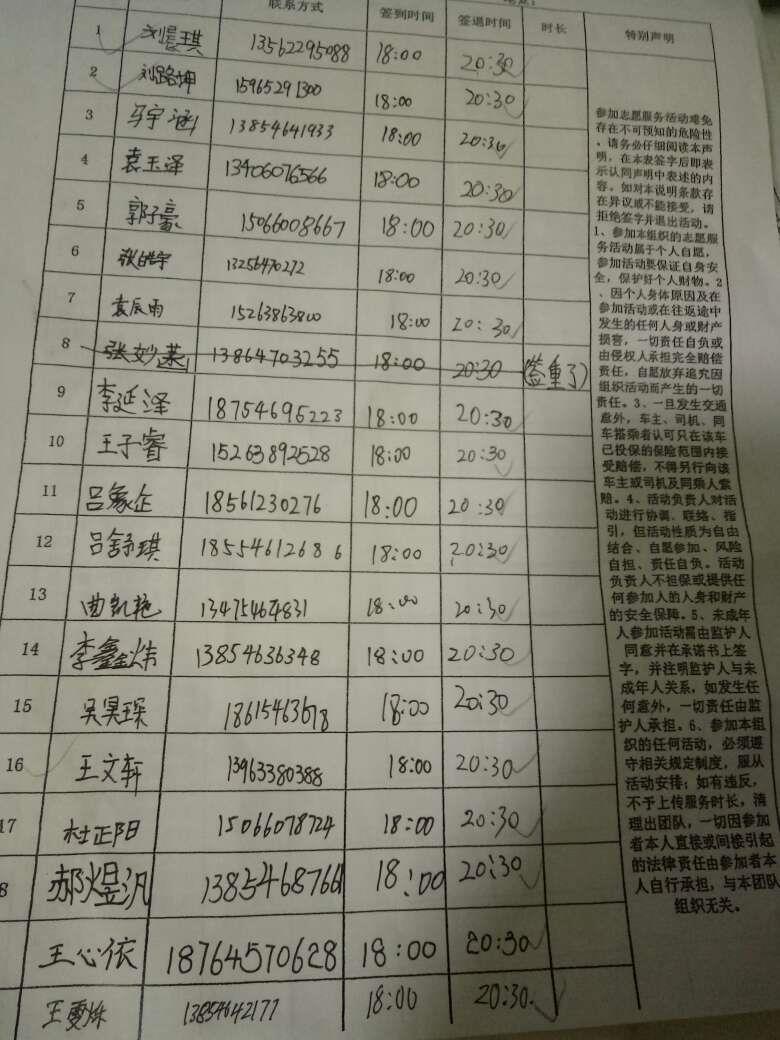 联系方式 签到时间 签退时间 时长 特别声明
1 刘晨琪 13562295088 18:00 20:30
2 刘路坤 15965291300 18:00 20:30
3 马宇涵 13854641933 18:00 20:30
4 袁玉泽 13406076566 18:00 20:30
5 郭子豪 15066008667 18:00 20:30
6 张皓宇 13256470272 18:00 20:30
7 袁辰雨 15263863800 18:00 20:30
8 张妙涵 13864703255 18:00 20:30 (签重了)
9 李延泽 18754695223 18:00 20:30
10 王子睿 15263892528 18:00 20:30
11 吕家企 18561230276 18:00 20:30
12 吕舒琪 18554612686 18:00 20:30
13 曲凯艳 13475464831 18:00 20:30
14 李鑫炜 13854636348 18:00 20:30
15 吴昊琛 18615463678 18:00 20:30
16 王文轩 13963380388 18:00 20:30
17 杜正阳 15066078724 18:00 20:30
8 郝煜汎 13854687661 18:00 20:30
王心依 18764570628 18:00 20:30
王雯姝 13854642177 18:00 20:30
参加志愿服务活动难免
存在不可预知的危险性
，请务必仔细阅读本声
明，在本表签字后即表
示认同声明中表述的内
容。如对本说明条款存
在异议或不能接受，请
拒绝签字并退出活动。
1、参加本组织的志愿服
务活动属于个人自愿，
参加活动要保证自身安
全，保护好个人财物。2
、因个人身体原因及在
参加活动或在往返途中
发生的任何人身或财产
损害，一切责任自负或
由侵权人承担完全赔偿
责任，自愿放弃追究因
组织活动而产生的一切
责任。3、一旦发生交通
意外，车主、司机、同
车搭乘者认可只在该车
已投保的保险范围内接
受赔偿，不得另行向该
车主或司机及同乘人索
赔。4、活动负责人对活
动进行协调、联络、指
引，但活动性质为自由
结合、自愿参加、风险
自担、责任自负。活动
负责人不担保或提供任
何参加人的人身和财产
的安全保障。5、未成年
人参加活动需由监护人
同意并在承诺书上签
字，并注明监护人与未
成年人关系，如发生任
何意外，一切责任由监
护人承担。6、参加本组
织的任何活动，必须遵
守相关规定制度，服从
活动安排；如有违反，
不予上传服务时长，清
理出团队，一切因参加
者本人直接或间接引起
的法律责任由参加者本
人自行承担，与本团队
组织无关。